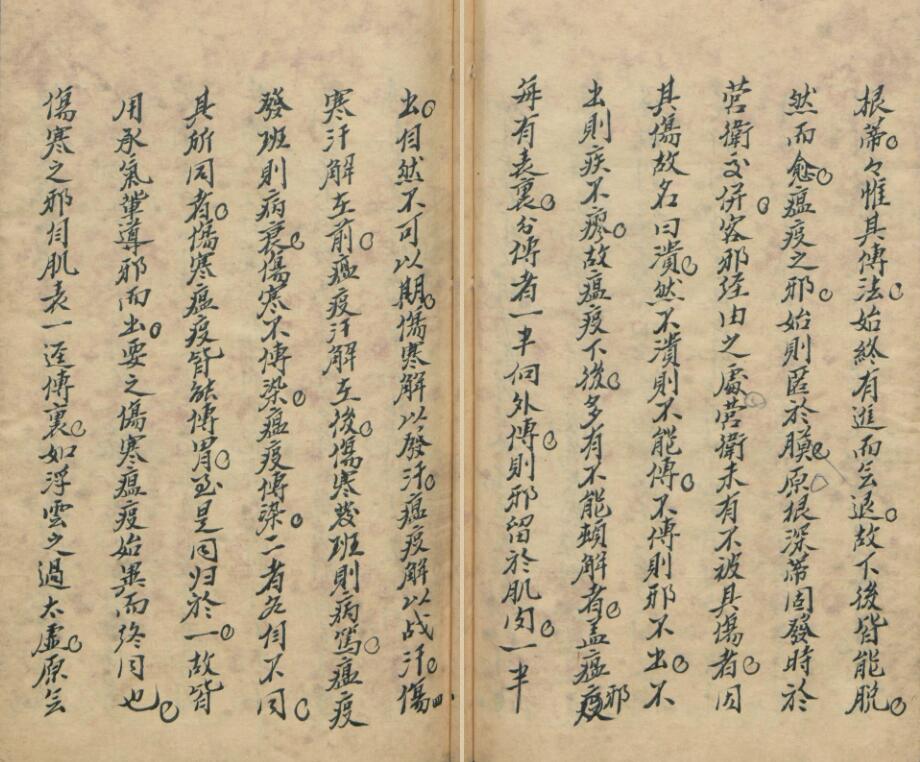 出自然不可以期傷寒解以發汗瘟疫解以战汗傷
寒汗解在前瘟疫汗解在後傷寒發班則病篤瘟疫
發班則病衰傷寒不傳染瘟疫傳染二者各自不同
其所同者傷寒瘟疫皆能傳胃至是同归於一故皆
用承氣輩導邪而出要之傷寒瘟疫始異而终同也
傷寒之邪自肌表一逕傳裏如浮雲之過太虛原无
根蒂々惟其傳法始終有進而无退故下後皆能脱
然而愈瘟疫之邪始則匿於膜原根深蒂固發時於
营衛交併客邪经由之處营衛未有不被其傷者因
其傷故名曰潰然不潰則不能傳不傳則邪不出不
出則疾不瘳故瘟疫下後多有不能頓解者盖瘟疫邪
每有表裏分傳者一半向外傳則邪留於肌肉一半